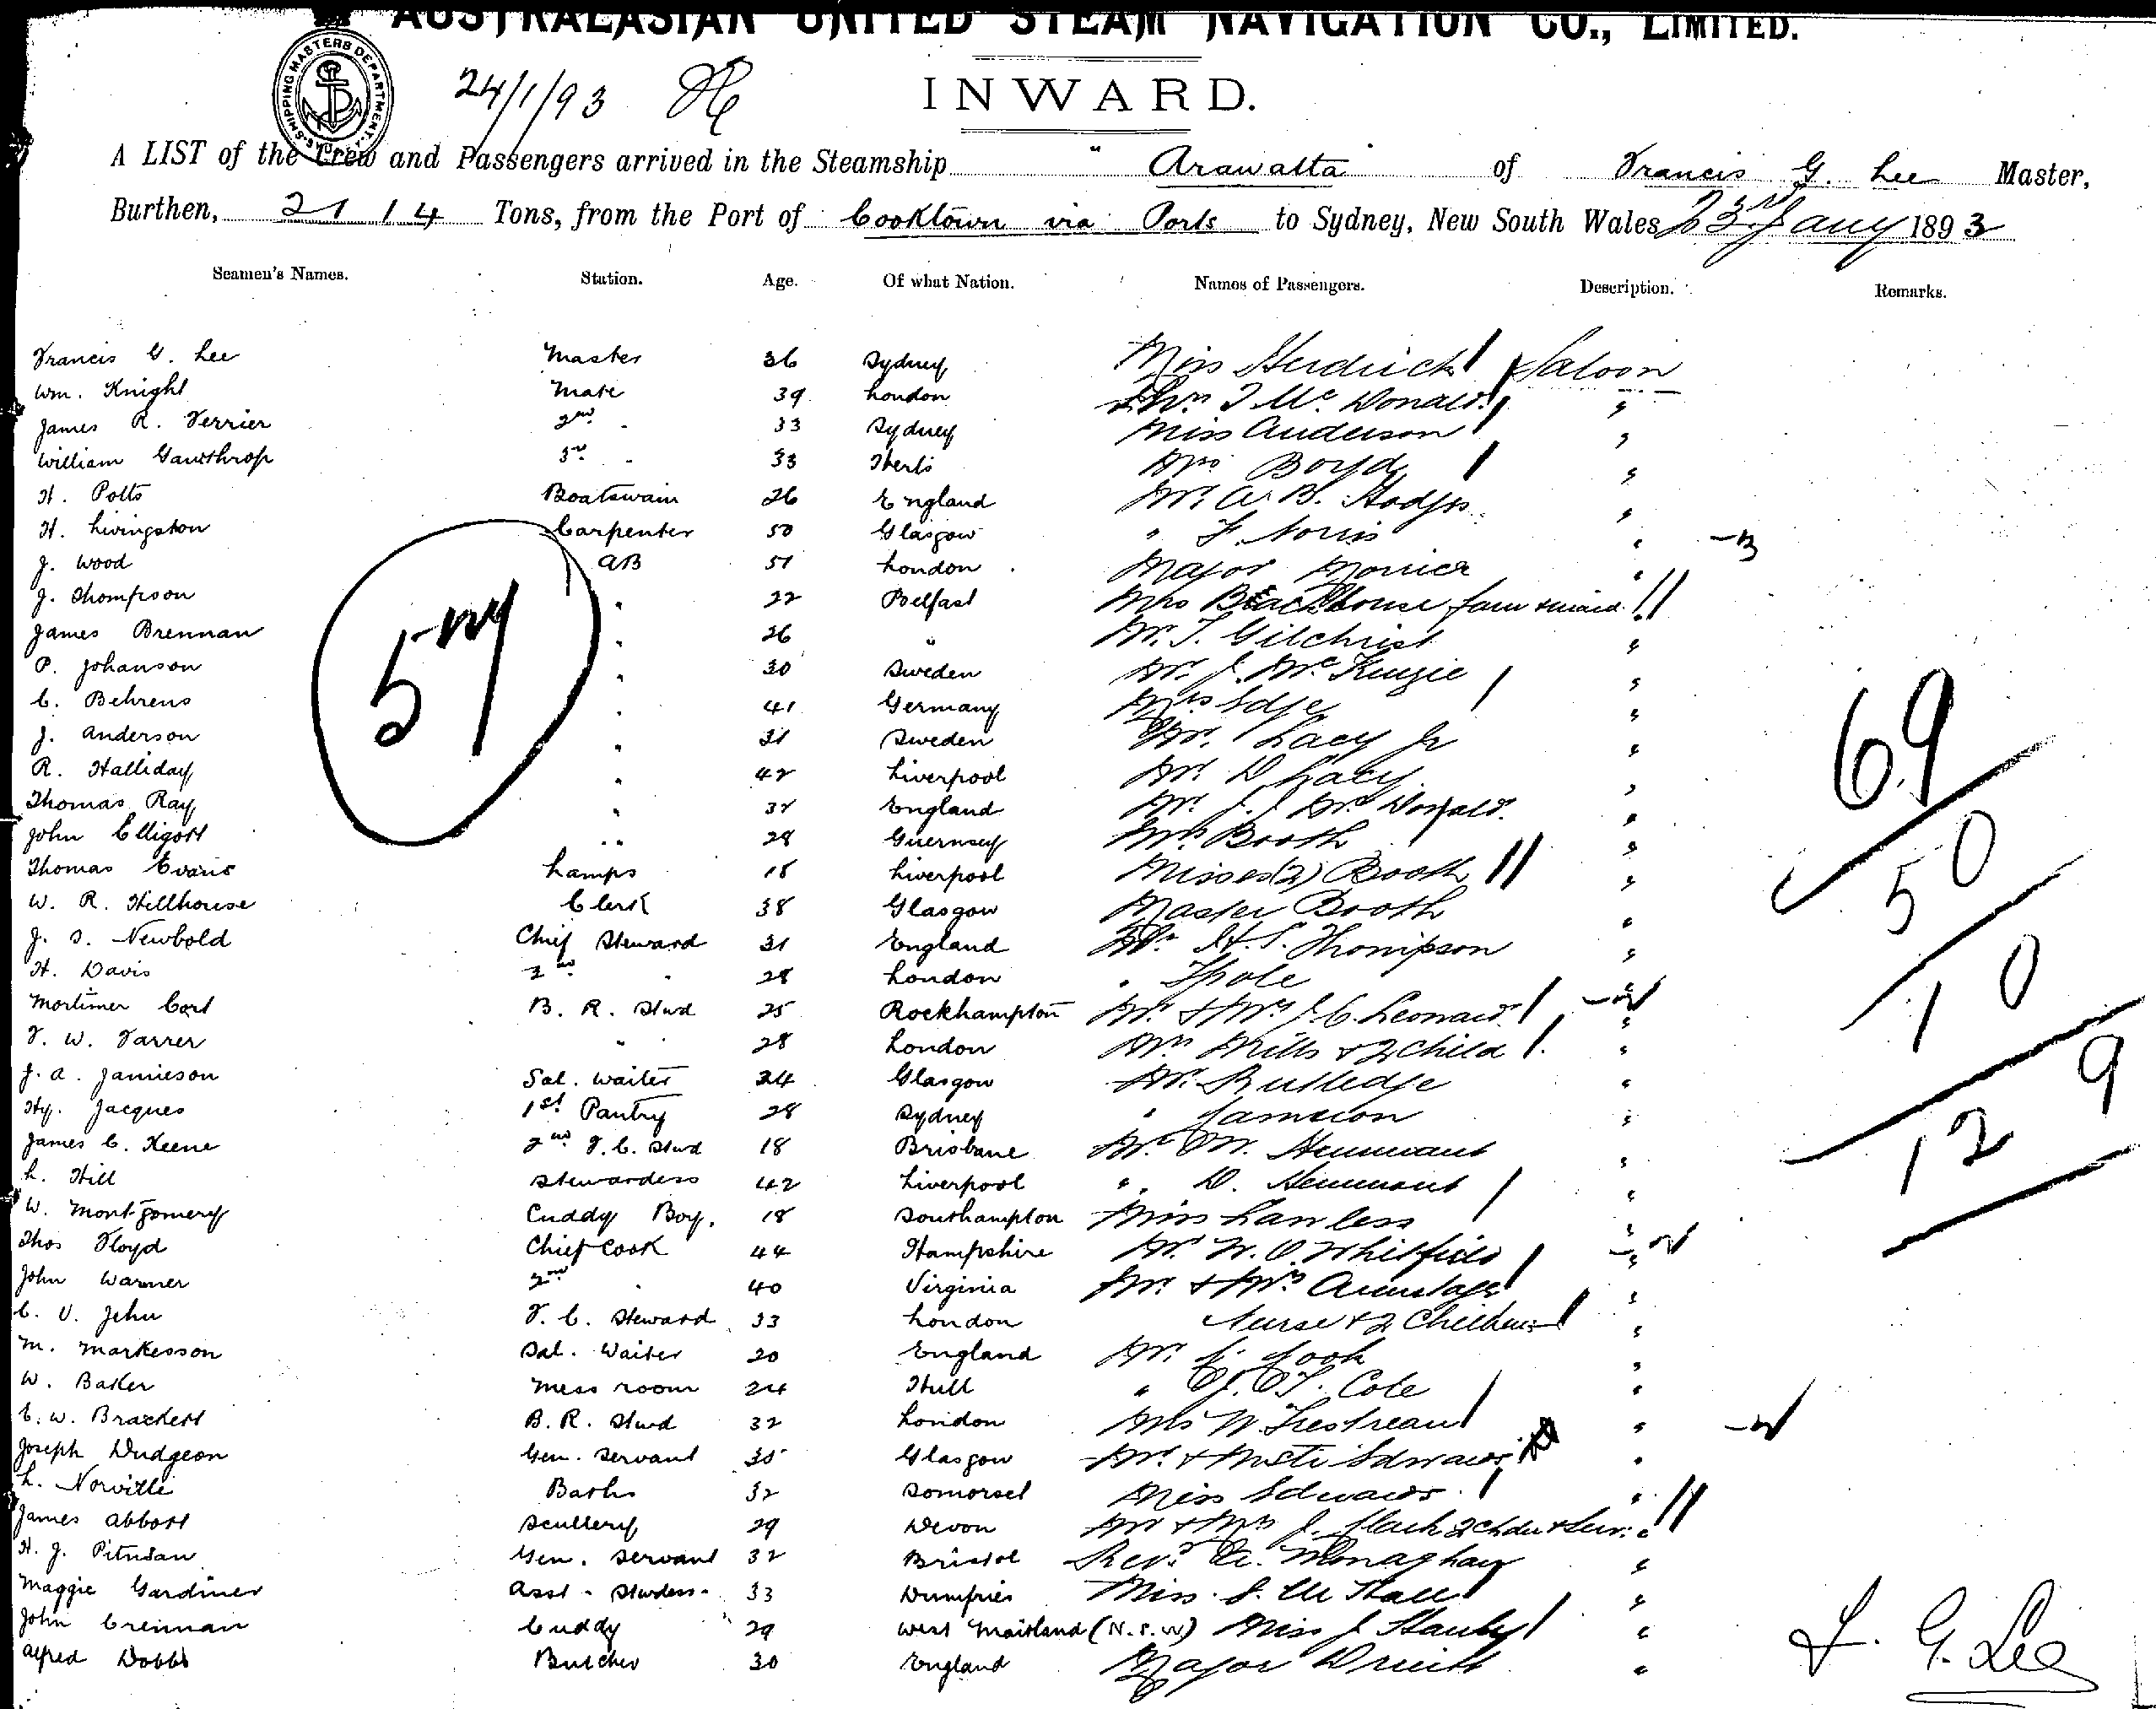 AUSTRALASIAN UNITED STEAM NAVIGATION CO., LIMITED.
SHIPPING MASTERS DEPARTMENT.
24/1/93
INWARD.
A LIST of the Crew and Passengers arrived in the Steamship "Arawatta" of Francis G. Lee Master,
Burthen, 2114 Tons, from the Port of Cooktown via Ports to Sydney, New South Wales 23rd Jany 1893
Seamen's Names. Station. Age. Of what Nation. Names of Passengers. Description. Remarks.
Francis G. Lee Master 36 Sydney Miss Saloon
Wm. Knight Mate 39 London McDonald "
James R. Ferrier 2nd " 33 Sydney Miss Anderson "
William Gawthrop 3rd " 33 Herts Mrs Boyd "
H. Potts Boatswain 26 England Mr. A. B. Hodges "
H. Livingston Carpenter 50 Glasgow " F. Norris "
J. Wood AB 51 London Major "
J. Thompson " 22 Belfast Mrs Blackhouse fam & maid "
James Brennan " 26 " Mr. T. Gilchrist "
P. Johanson " 30 Sweden Mr. J. McKenzie "
C. Behrens " 41 Germany "
J. Anderson " 31 Sweden Mr. Lacy Jr "
R. Halliday " 42 Liverpool Mr. D Lacy "
Thomas Ray " 37 England Mr. J. J McDonald. "
John Elligott " 28 Guernsey Mrs Booth "
Thomas Evans Lamps 18 Liverpool Misses (2) Booth "
W. R. Hillhouse Clerk 38 Glasgow Master Booth "
J. S. Newbold Chief Steward 31 England Mr. H. S. Thompson "
H. Davis 2nd " 28 London " "
Mortimer Cort B. R. Stwd 25 Rockhampton Mr. & Mrs J. C. Leonard "
F. W. Farrer " 28 London Mrs Mills & 2 Child "
J. A. Jamieson Sal. Waiter 24 Glasgow Mr. Rutledge "
Hy. Jacques 1st Pantry 28 Sydney " Jameson "
James C. Keene 2nd F. C. Stwd 18 Brisbane Mr. W. Hemmant "
L. Hill Stewardess 42 Liverpool " D. Hemmant "
W. Montgomery Cuddy Boy. 18 Southampton Miss Lawless "
Thos Floyd Chief Cook 44 Hampshire Mr. W. O. Whitfield "
John Warner 2nd " 40 Virginia Mr. & Mrs Armitage "
C. V. Jehu F. C. Steward 33 London Nurse & 2 Children "
M. Markesson Sal. Waiter 20 England Mr. Cook "
W. Baker Mess room 24 Hull " Cole "
C. W. Brackett B. R. Stwd 32 London Mrs W "
Joseph Dudgeon Gen. Servant 35 Glasgow Mr. & Edwards "
L. Norville Baths 32 Somerset Miss Edwards "
James Abbott Scullery 29 Devon Mr & Mrs J. "
H. J. Gen. Servant 32 Bristol Revd. Monaghan "
Maggie Gardiner Asst. Stwdess. 33 Dumfries Miss "
John Crennan Cuddy " 29 West Maitland (N.S.W) Miss J Stanley "
Alfred Dobbs Butcher 30 England Major Druitt "
57
69
50
10
129
F. G. Lee